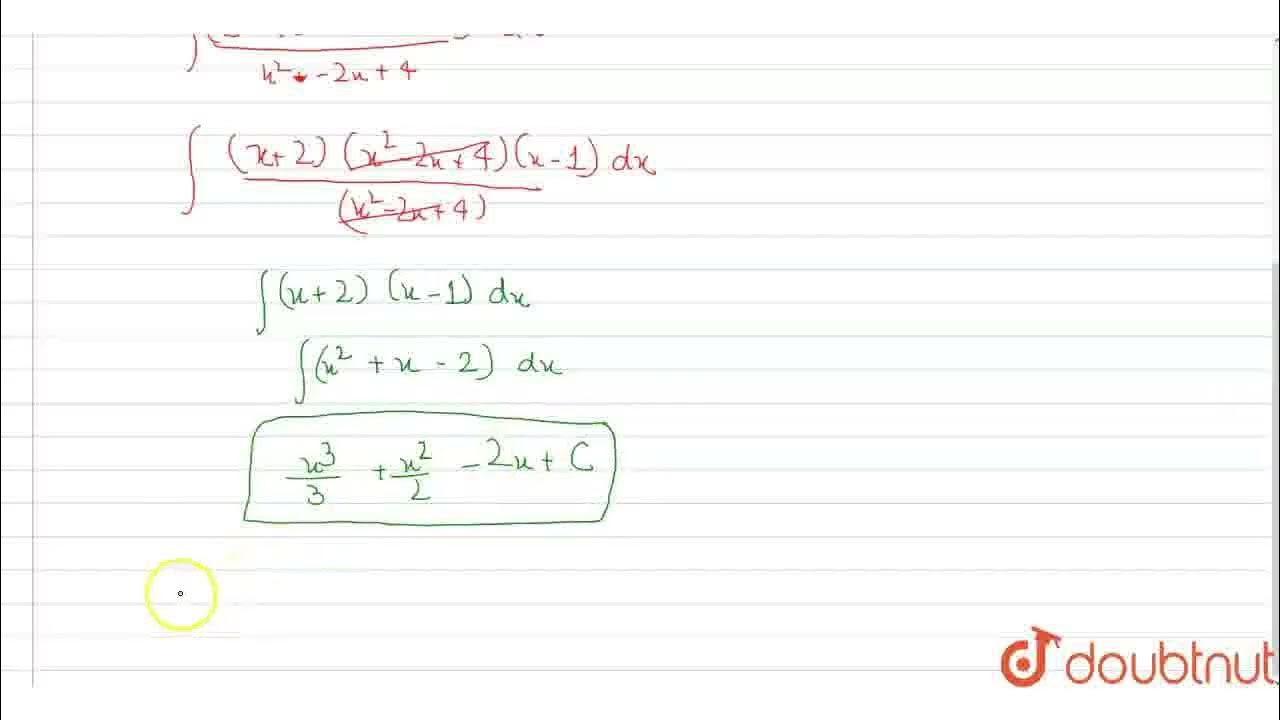 x² - 2x + 4
∫ (x+2) (x² - 2x + 4) (x - 1) dx
(x² - 2x + 4)
∫ (x+2) (x - 1) dx
∫ (x² + x - 2) dx
x³/3 + x²/2 - 2x + C
doubtnut